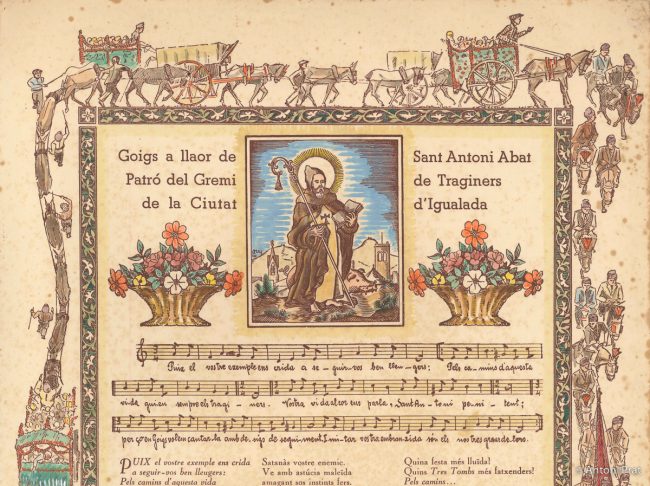 Goigs a llaor de Sant Antoni Abat
Patró del Gremi de Traginers
de la Ciutat d'Igualada
Puix el vostre exemple ens crida a se-guir-vos ben lleu-gers: Pels ca-mins d'aquesta
vida guieu sempre els tragi-ners. Vostra vida al cor ens parla: Sant An-to-ni pe-ni-tent;
per ço en Goigs volem cantar-la amb de-sigs de segui-ment. Imi-tar vostra
PUIX el vostre exemple ens crida
a seguir-vos ben lleugers:
Pels camins d'aquesta vida
Satanàs vostre enemic.
Ve amb astúcia maleïda
amagant sos instints fers.
Quina festa més lluïda!
Quins Tres Tombs més fatxenders!
Pels camins...
© Antoni Prat